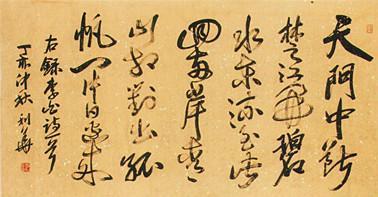 天門中断
楚江開碧
水東流至此
回兩岸青
山相對出孤
帆一片日邊来
右録李白詩一首
丁亥仲秋